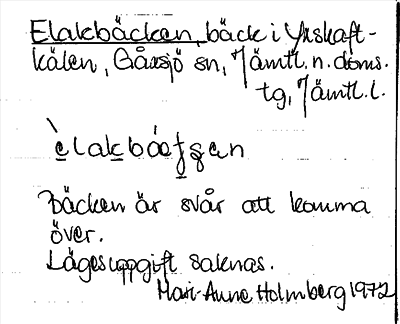 Elakbäcken, bäck i Yxskaft-
kälen, Gåxsjö sn, Jämtl. n. doms.
tg, Jämtl. l.
Bäcken är svår att komma
över.
Lägesuppgift saknas.
Mari-Anne Holmberg 1972